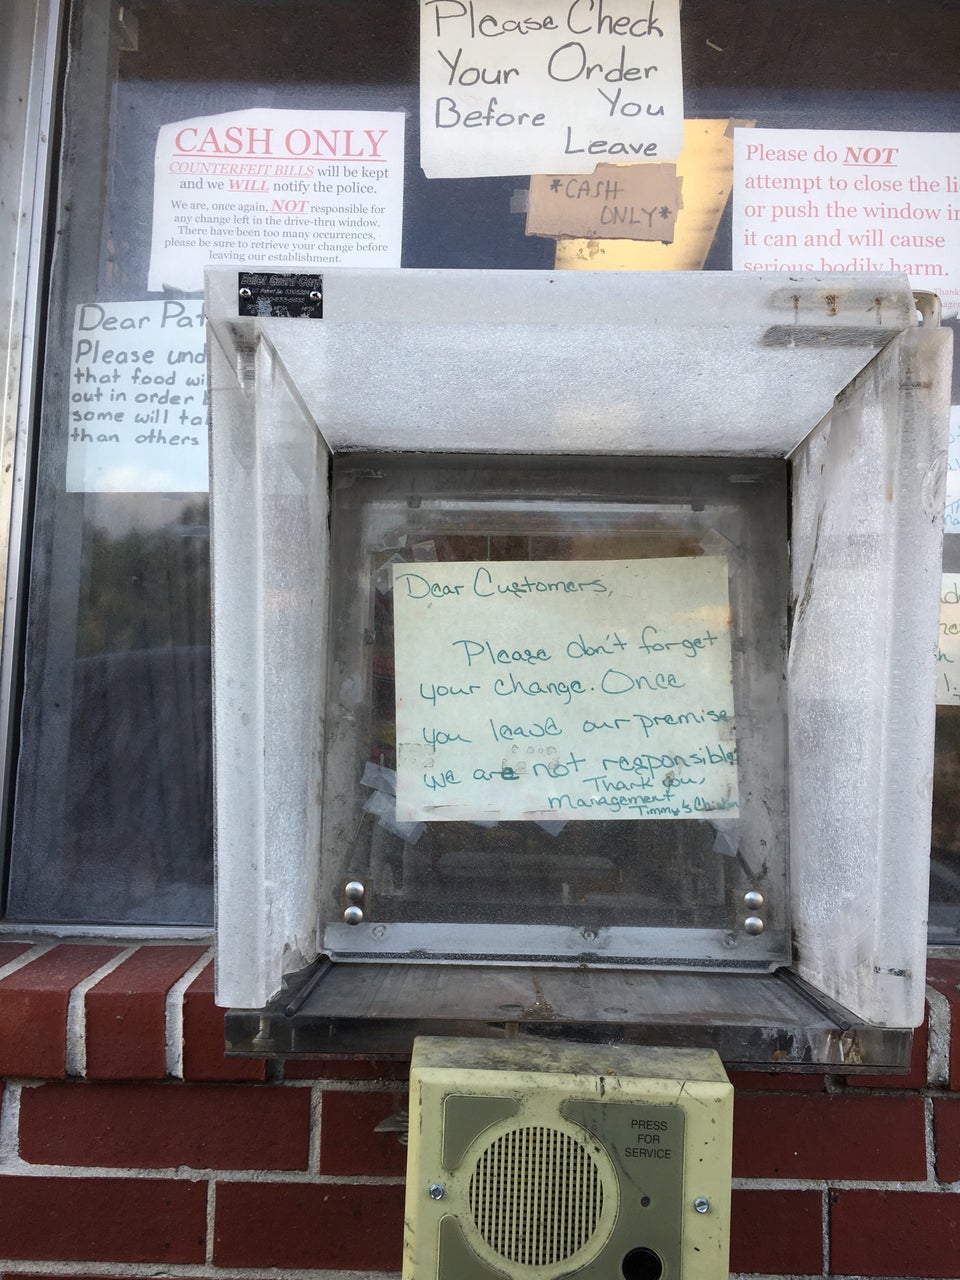 Please Check
Your Order
Before You
Leave
CASH ONLY
COUNTERFEIT BILLS will be kept
and we WILL notify the police.
We are, once again, NOT responsible for
any change left in the drive-thru window.
There have been too many occurrences,
please be sure to retrieve your change before
leaving our establishment.
*CASH
ONLY*
Please do NOT
attempt to close the li
or push the window in
it can and will cause
serious bodily harm.
Thank
Dear Pat
Please und
that food wi
out in order
some will ta
than others
Dear Customers,
Please don't forget
your change. Once
you leave our premise
we are not responsible
Thank you,
Management
Timmy's
PRESS
FOR
SERVICE